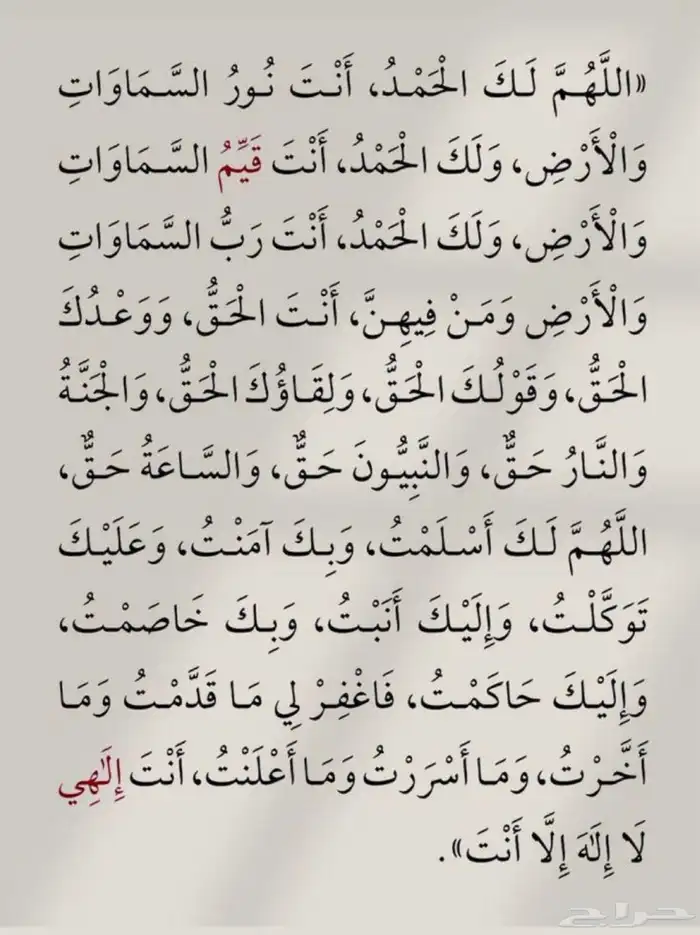 «اللَّهُمَّ لَكَ الْحَمْدُ، أَنْتَ نُورُ السَّمَاوَاتِ
وَالْأَرْضِ، وَلَكَ الْحَمْدُ، أَنْتَ قَيِّمُ السَّمَاوَاتِ
وَالْأَرْضِ، وَلَكَ الْحَمْدُ، أَنْتَ رَبُّ السَّمَاوَاتِ
وَالْأَرْضِ وَمَنْ فِيهِنَّ، أَنْتَ الْحَقُّ، وَوَعْدُكَ
الْحَقُّ، وَقَوْلُكَ الْحَقُّ، وَلِقَاؤُكَ الْحَقُّ، وَالْجَنَّةُ
وَالنَّارُ حَقٌّ، وَالنَّبِيُّونَ حَقٌّ، وَالسَّاعَةُ حَقٌّ،
اللَّهُمَّ لَكَ أَسْلَمْتُ، وَبِكَ آمَنْتُ، وَعَلَيْكَ
تَوَكَّلْتُ، وَإِلَيْكَ أَنَبْتُ، وَبِكَ خَاصَمْتُ،
وَإِلَيْكَ حَاكَمْتُ، فَاغْفِرْ لِي مَا قَدَّمْتُ وَمَا
أَخَّرْتُ، وَمَا أَسْرَرْتُ وَمَا أَعْلَنْتُ، أَنْتَ إِلَٰهِي
لَا إِلَٰهَ إِلَّا أَنْتَ».
حراج